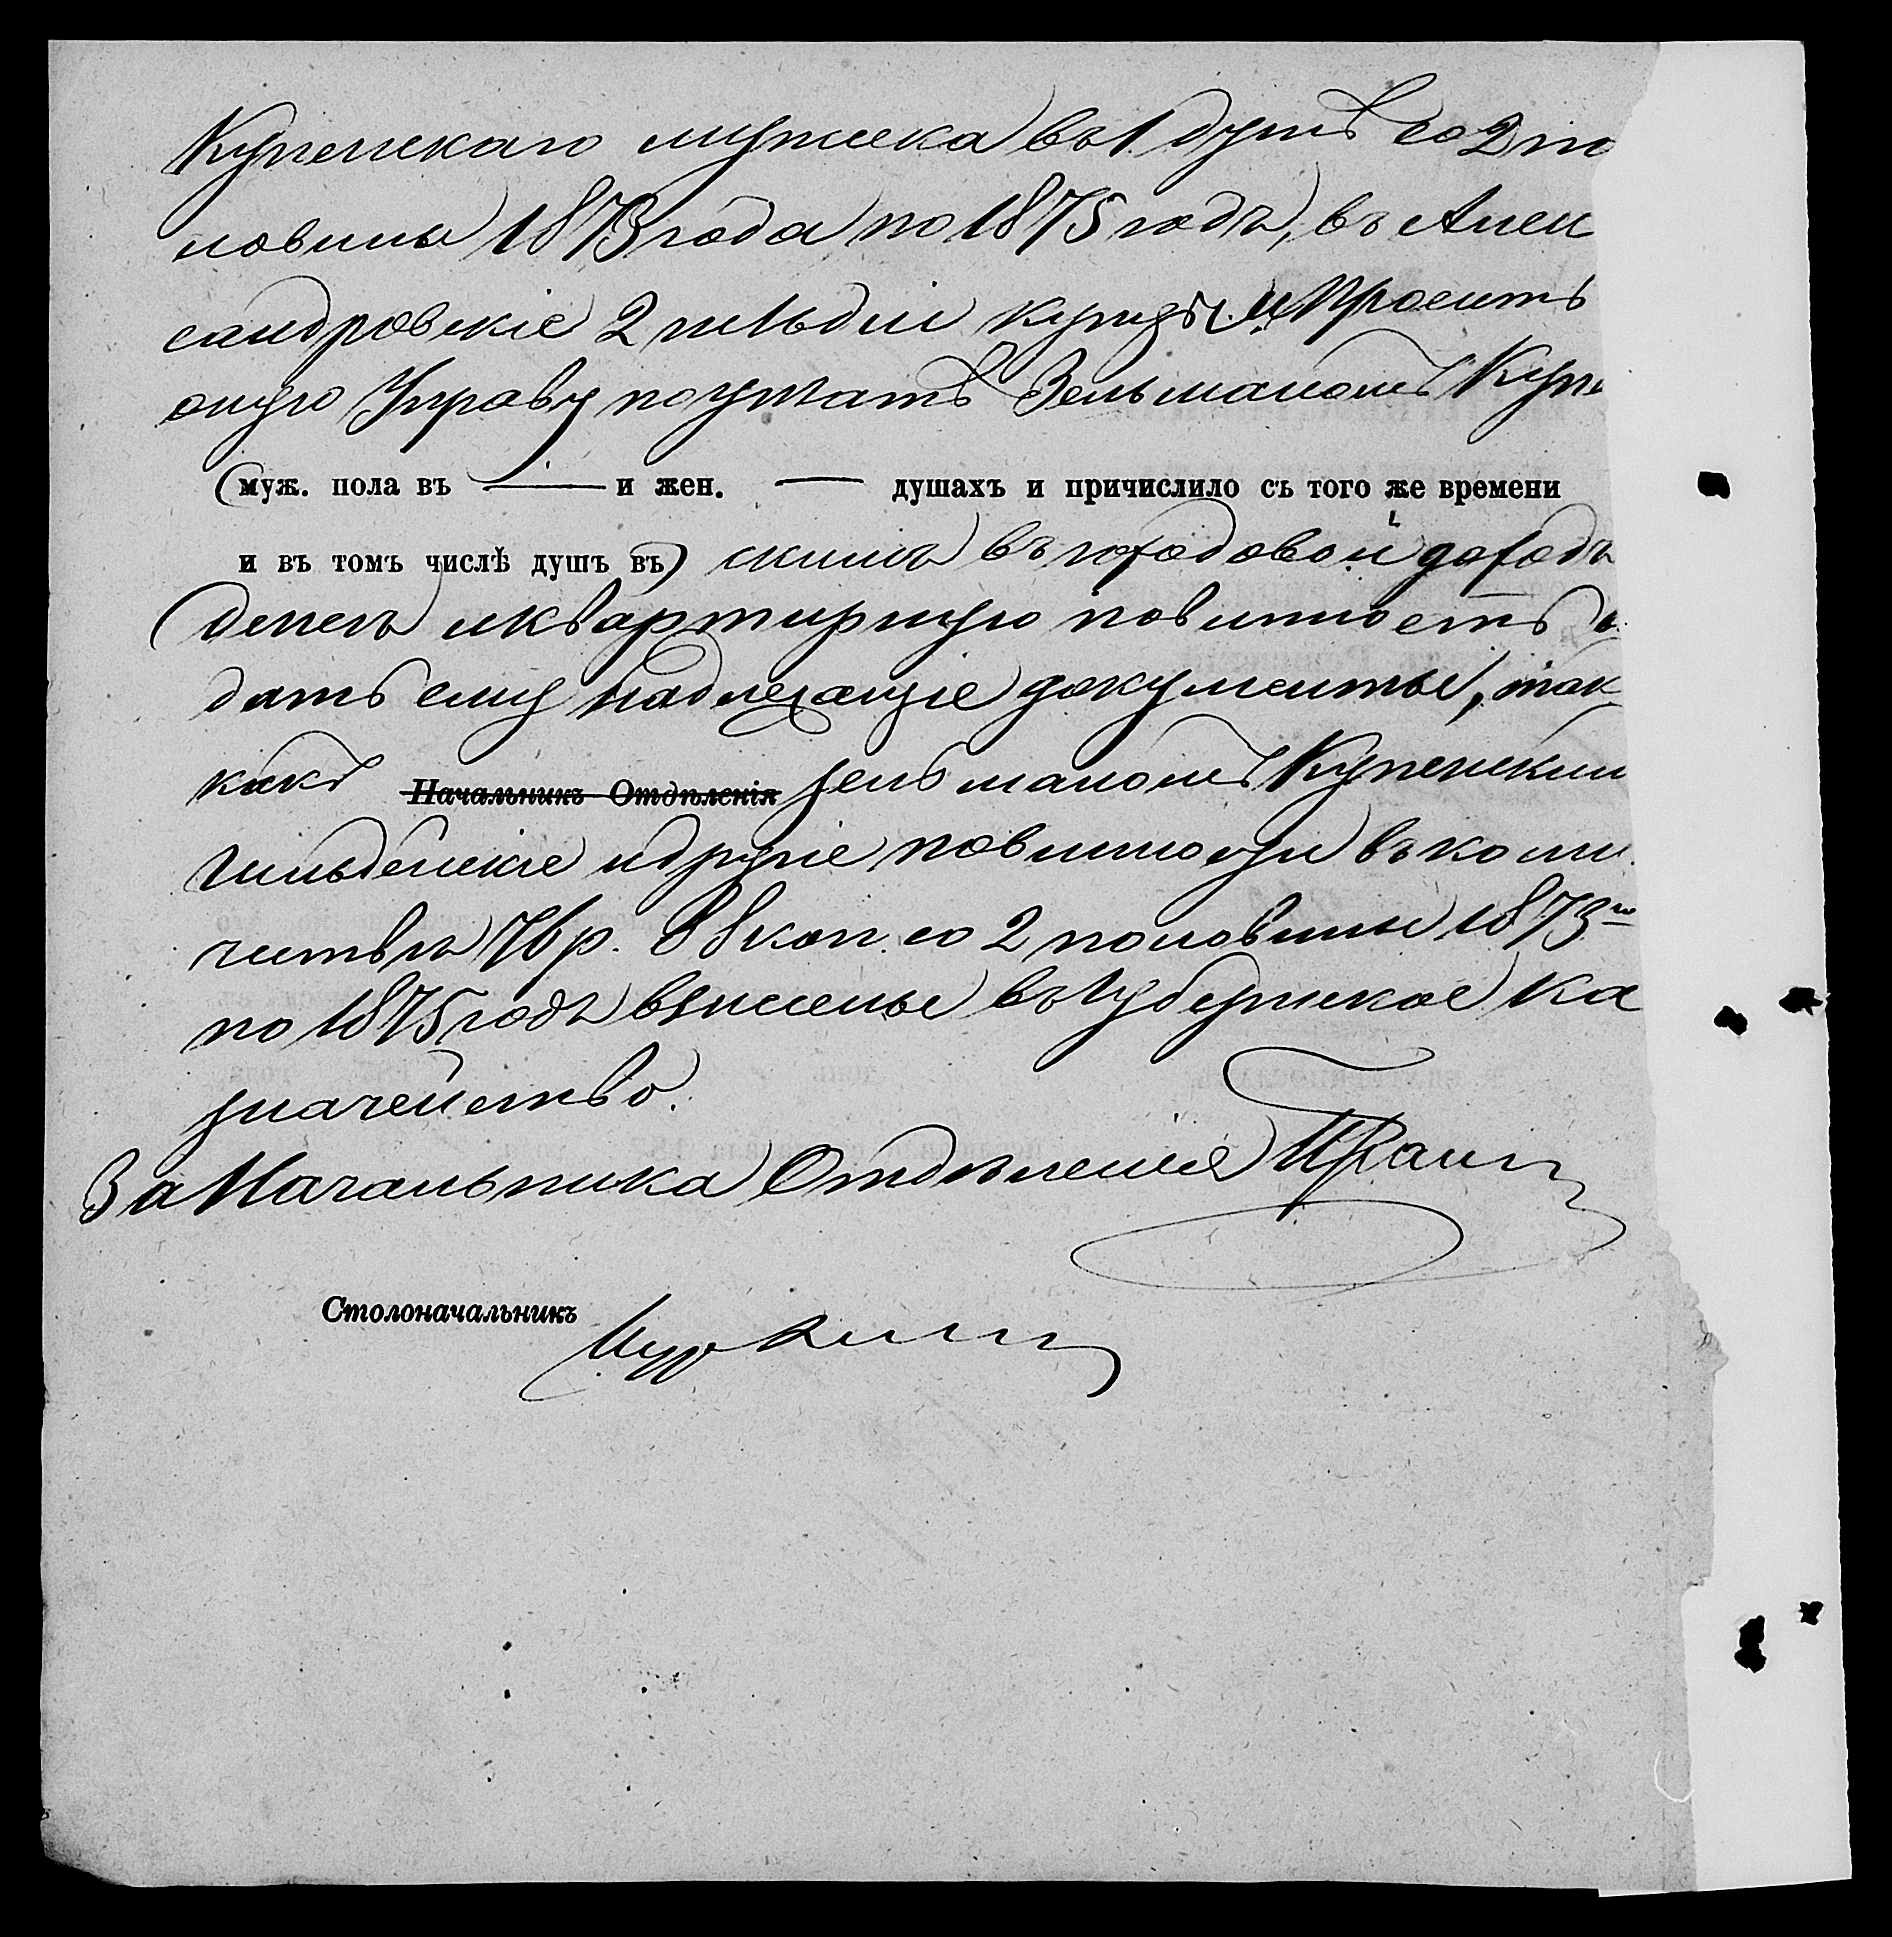 Купенскаго мужеска въ 1 душѣ со 2 по
ловины 1873 года по 1875 годъ, въ Алек
сандровскіе 2 гильдіи купцы и проситъ
оную Управу получать Зельманомъ Купе
(муж. пола въ — и жен. — душахъ и причислило съ того же времени
и въ томъ числѣ душъ въ) скимъ въ городовой доходъ
денегъ и квартирную повинность
дать ему надлежащіе документы, такъ
какъ Начальникъ Отдѣленія Зельманомъ Купенским
гильдейскіе и другіе повинности въ коли
чествѣ 76 р. 88 коп. со 2 половины 1873 го
по 1875 годъ взнесены въ Губернское ка
значейство.
За Начальника Отдѣленія
Столоначальникъ